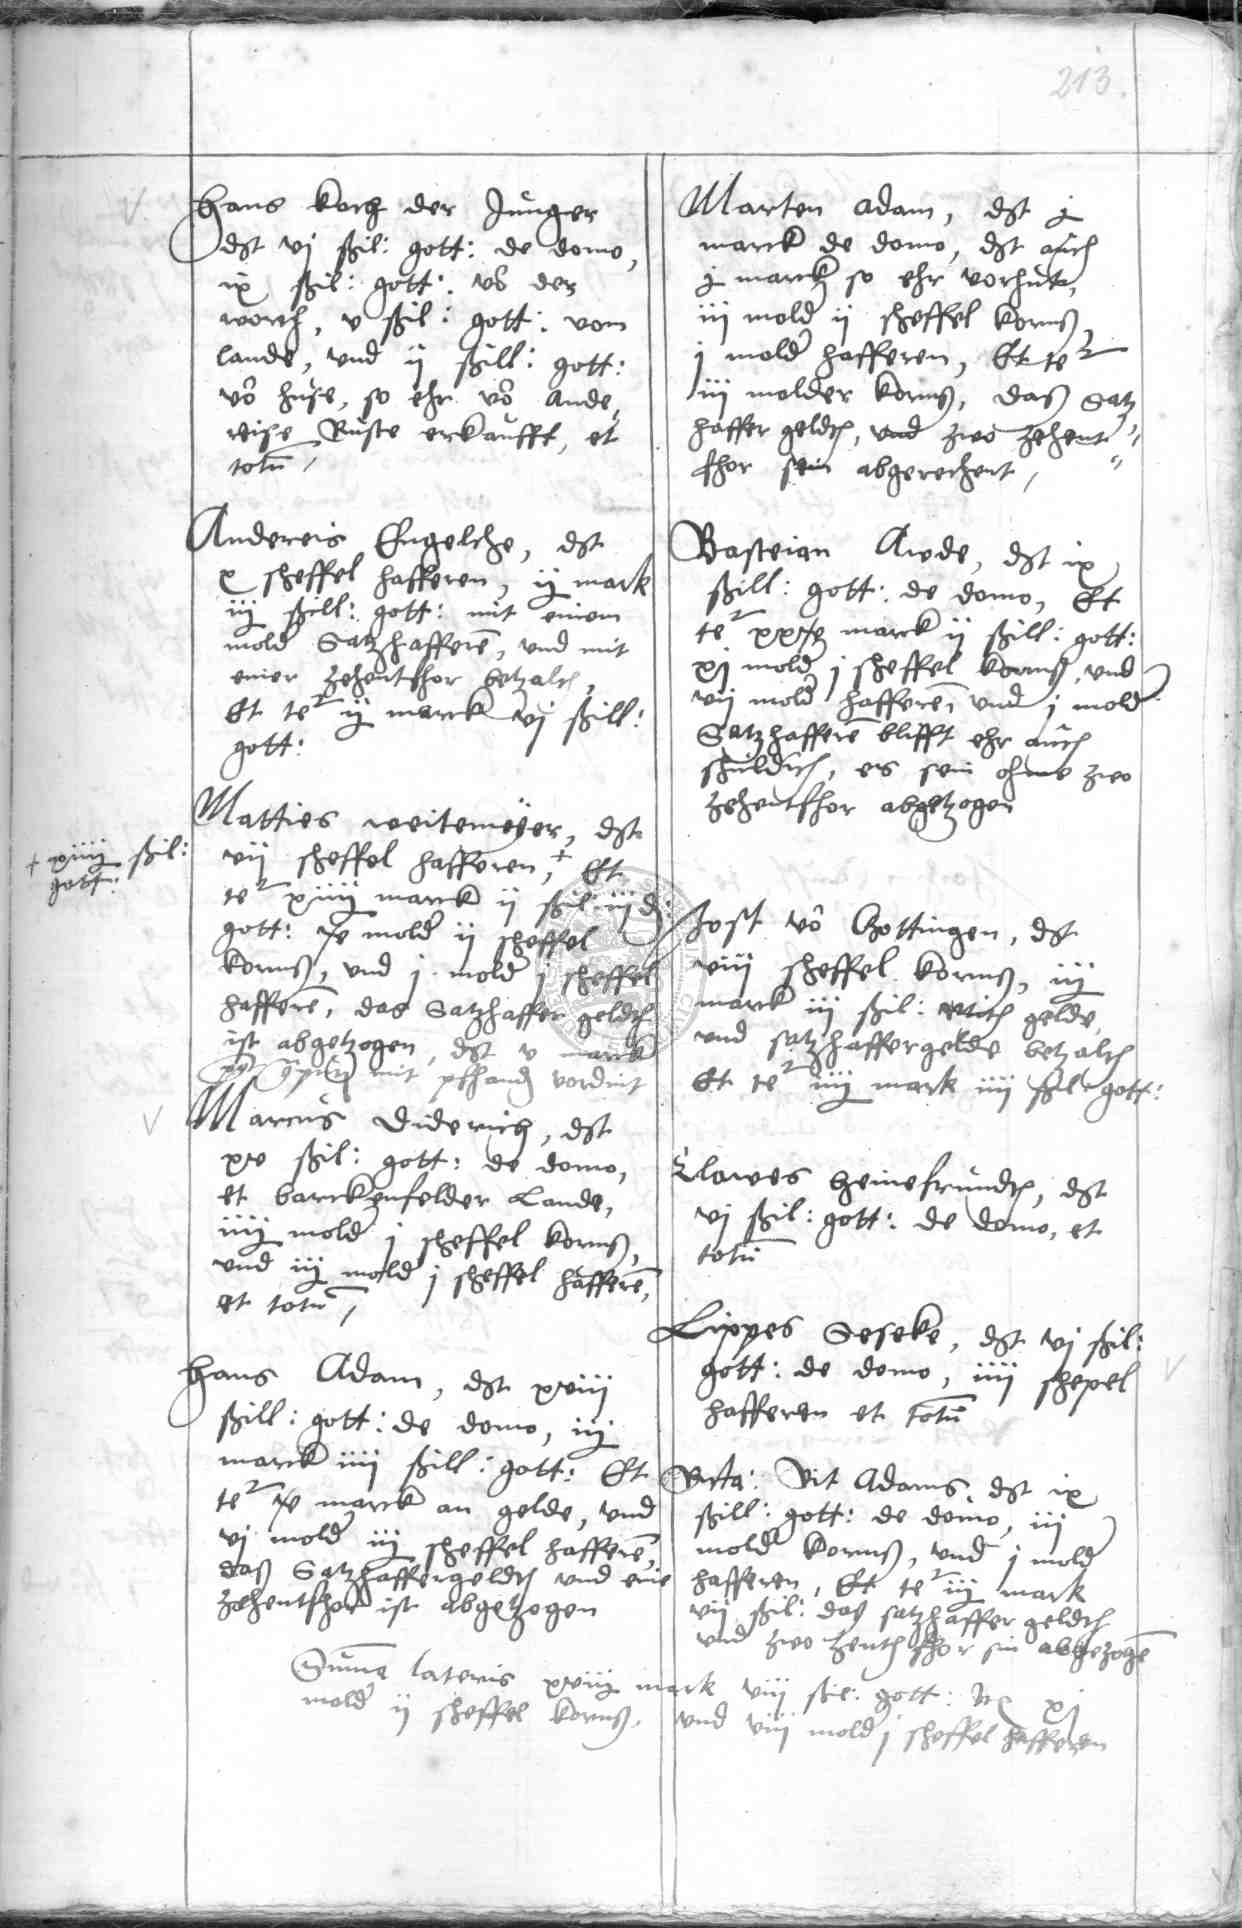 213.
Hans Koch der Junger
dst vj ßil: gott: de domo,
ix ßil: gott: vō der
worth, v ßil: gott: vom
lande, vnd ij ßill: gott:
vō huse, so ehr vō Ande,
reise Ruste erkaufft, et
totū /
Andereis Engelche, dst
x scheffel hafferen, ij mark
iij ßill: gott: mit einem
mold Satzhafferē, vnd mit
einer Zehentfhor betzalt,
Et te ij marck vj ßill:
gott:
Matties weitemeyer, dst
vij scheffel hafferen, + Et
+ xiiij ßil:
gott:
te xiiij marck ij ßil iij d:
gott: mold ij scheffel
korns, vnd j mold j scheffel
hafferē, das Satzhaffer geldt
ist abgetzogen, dst v marck
mit pfhand vordint
Marcus Diderich, dst
xv ßil: gott: de domo,
et barckenfelder Lande,
iiij mold j scheffel korns,
vnd iij mold j scheffel hafferē,
et totū /
Hans Adam, dst xviij
ßill: gott: de domo, iij
marck iiij ßill: gott: Et
te marck an gelde, vnd
vj mold iij scheffel hafferē,
daß Satzhaffergeldt vnd eine
Zehentfhor ist abgetzogen
Marten Adam, dst j
marck de domo, dst auch
j marck so ehr vorhut,
iij mold ij scheffel korns,
j mold hafferen, Et te
iij molder korns, daß Satz
haffer geldt, vnd zwo zehent
fhor sein abgerechent /
Basteian Awde, dst ix
ßill: gott: de domo, Et
te marck ij ßill: gott:
xj mold j scheffel korns, vnd
vij mold hafferē vnd j mold
Satzhafferē blifft ehr auch
schuldich, es sein ohme zwo
Zehentfhor abgetzogen
Jost vō Gottingen, dst
viij scheffel korns, iij
marck iij ßil: gelde,
vnd satzhaffergelde betzalt
Et te iiij mark iiij ßil gott:
Clawes Heinefrundt, dst
vj ßil: gott: de domo, et
totū
Lippes Seseke, dst vj ßil:
gott: de domo, iiij schepel
hafferen et totū
Rcta: Vit Adams dst ix
ßill: gott: de domo, iij
mold korns, vnd j mold
hafferen, Et te iij mark
vij ßil: das satzhaffer geldt
vnd zwo zenth fhor sin abgezogē
Suma lateris xviij mark viij ßil: gott: xj
mold ij scheffel korns, vnd viij mold j scheffel hafferen